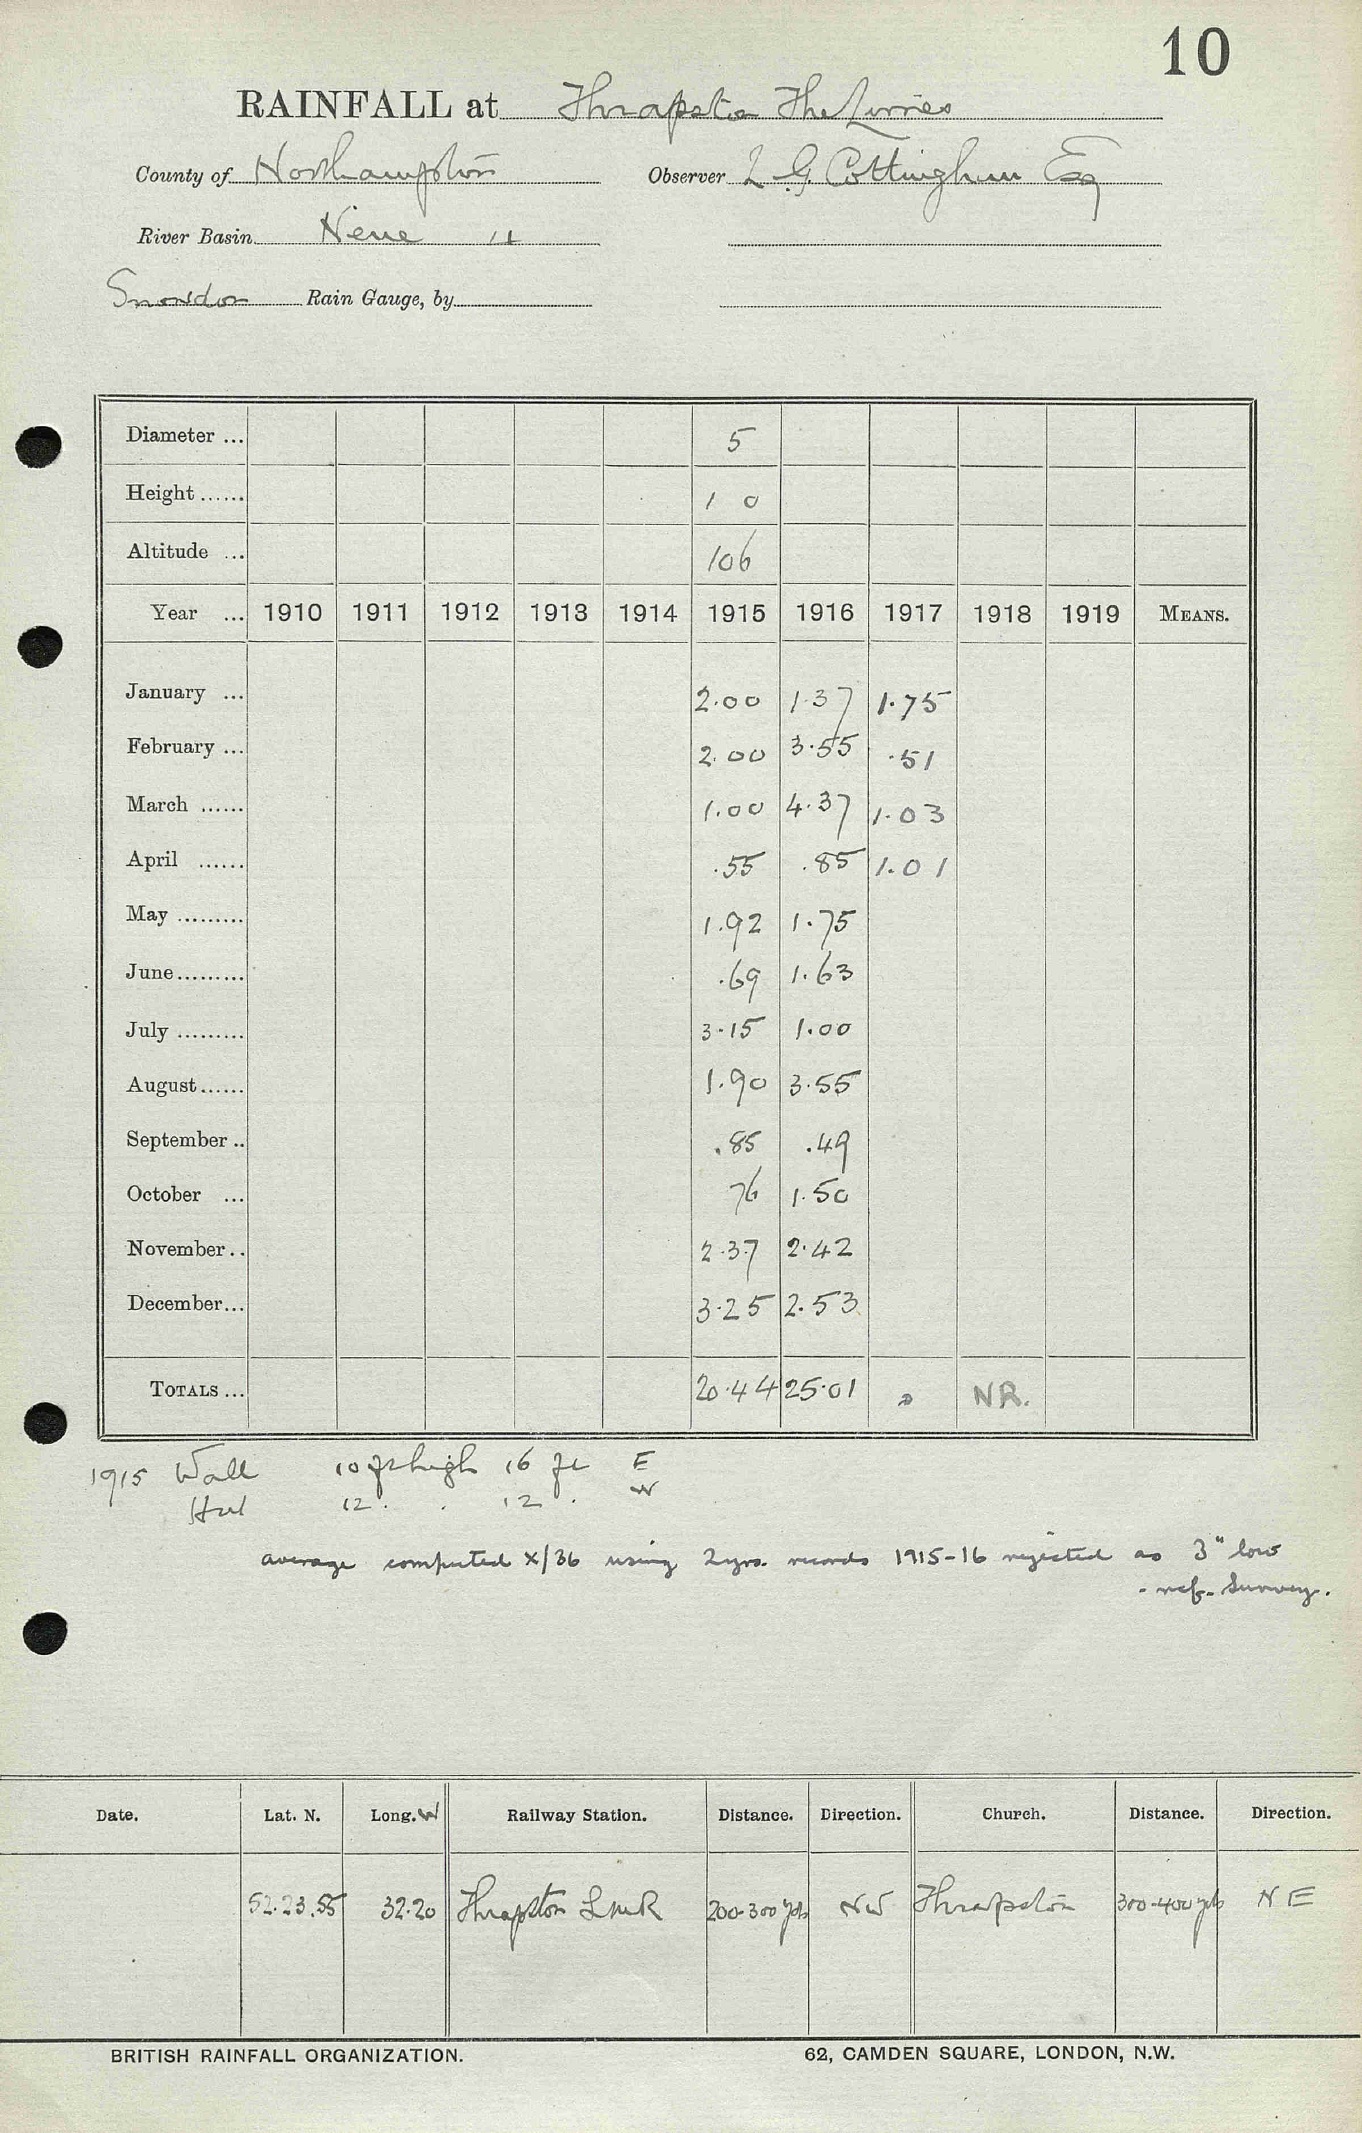 10
RAINFALL at Thrapston The Limes
County of Northampton Observer L G. Cottingham Esq
River Basin Nene 11
Snowdon Rain Gauge, by
Diameter ... 5
Height ...... 1 0
Altitude ... 106
Year ... 1910 1911 1912 1913 1914 1915 1916 1917 1918 1919 MEANS.
January ... 2.00 1.37 1.75
February ... 2.00 3.55 .51
March ...... 1.00 4.37 1.03
April ...... .55 .85 1.01
May ......... 1.92 1.75
June ......... .69 1.63
July ......... 3.15 1.00
August ...... 1.90 3.55
September .. .85 .49
October ... 76 1.50
November .. 2.37 2.42
December ... 3.25 2.53
TOTALS ... 20.44 25.01 NR.
1915 Wall 10 ft high 16 ft E
Hut 12 . . 12 . W
average computed X/36 using 2 yrs. records 1915-16 rejected as 3" low
- ref. Survey.
Date. Lat. N. Long. W Railway Station. Distance. Direction. Church. Distance. Direction.
52.23.55 32.20 Thrapston LMR 200-300 yds NW Thrapston 300-400 yds NE
BRITISH RAINFALL ORGANIZATION. 62, CAMDEN SQUARE, LONDON, N.W.